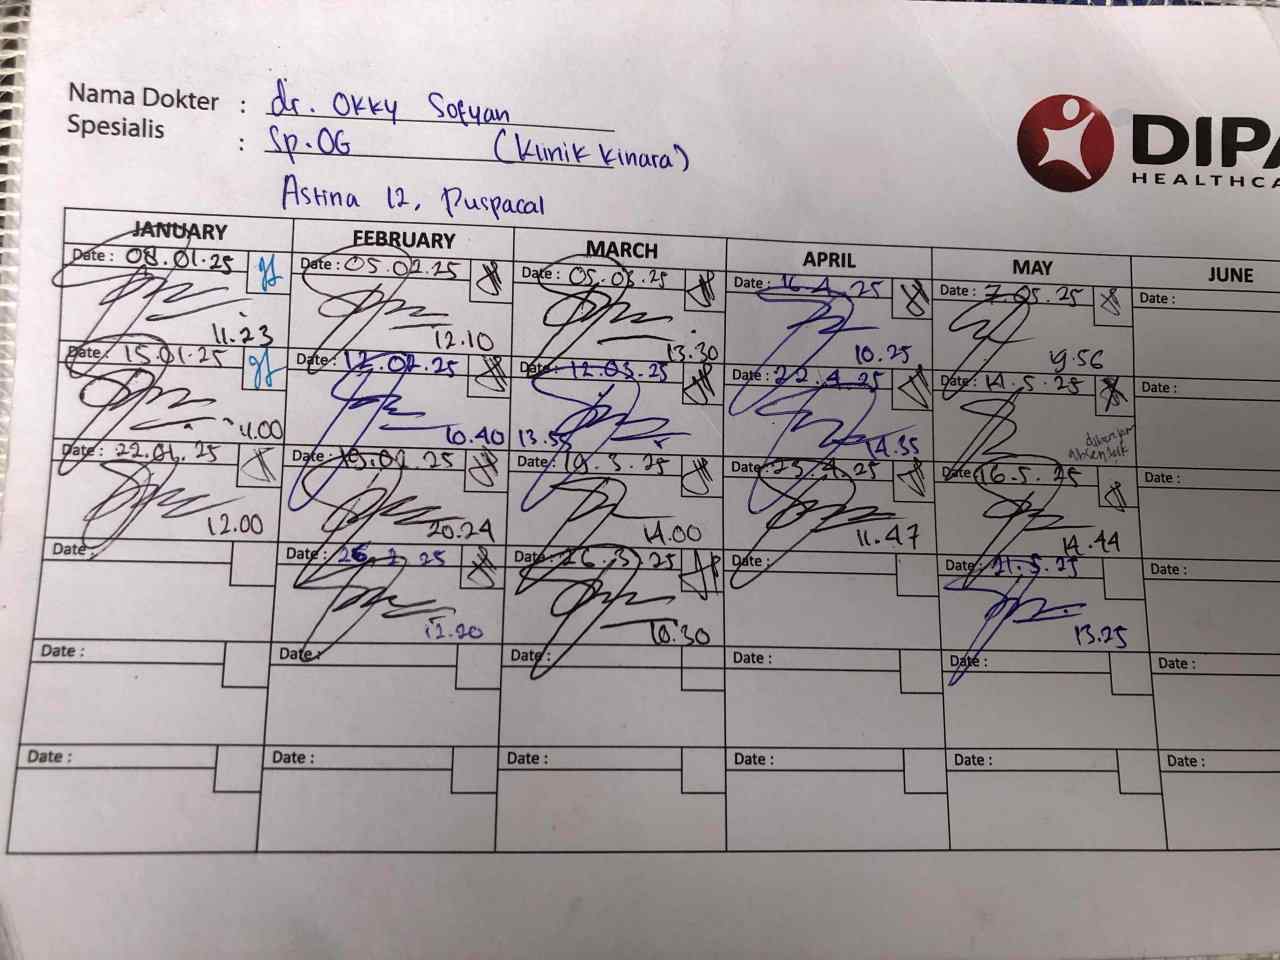 Nama Dokter : dr. Okky Sofyan
Spesialis : Sp.OG (Klinik Kinara)
Astina 12, Puspacal
DIPA
HEALTHCA
JANUARY FEBRUARY MARCH APRIL MAY JUNE
Date : 08.01.25 Date : 05.02.25 Date : 05.03.25 Date : 16.4.25 Date : 7.05.25 Date :
11.23 12.10 13.30 10.25 19.56
Date : 15.01.25 Date : 12.02.25 Date : 12.03.25 Date : 22.4.25 Date : 14.5.25 Date :
11.00 10.40 13.55 14.35
Date : 22.01.25 Date : 19.02.25 Date : 19.3.25 Date : 23.4.25 Date : 16.5.25 Date :
12.00 20.24 14.00 11.47 14.44
Date : Date : 26.2.25 Date : 26.3.25 Date : Date : 21.5.25 Date :
12.20 10.30 13.25
Date : Date : Date : Date : Date : Date :
Date : Date : Date : Date : Date : Date :